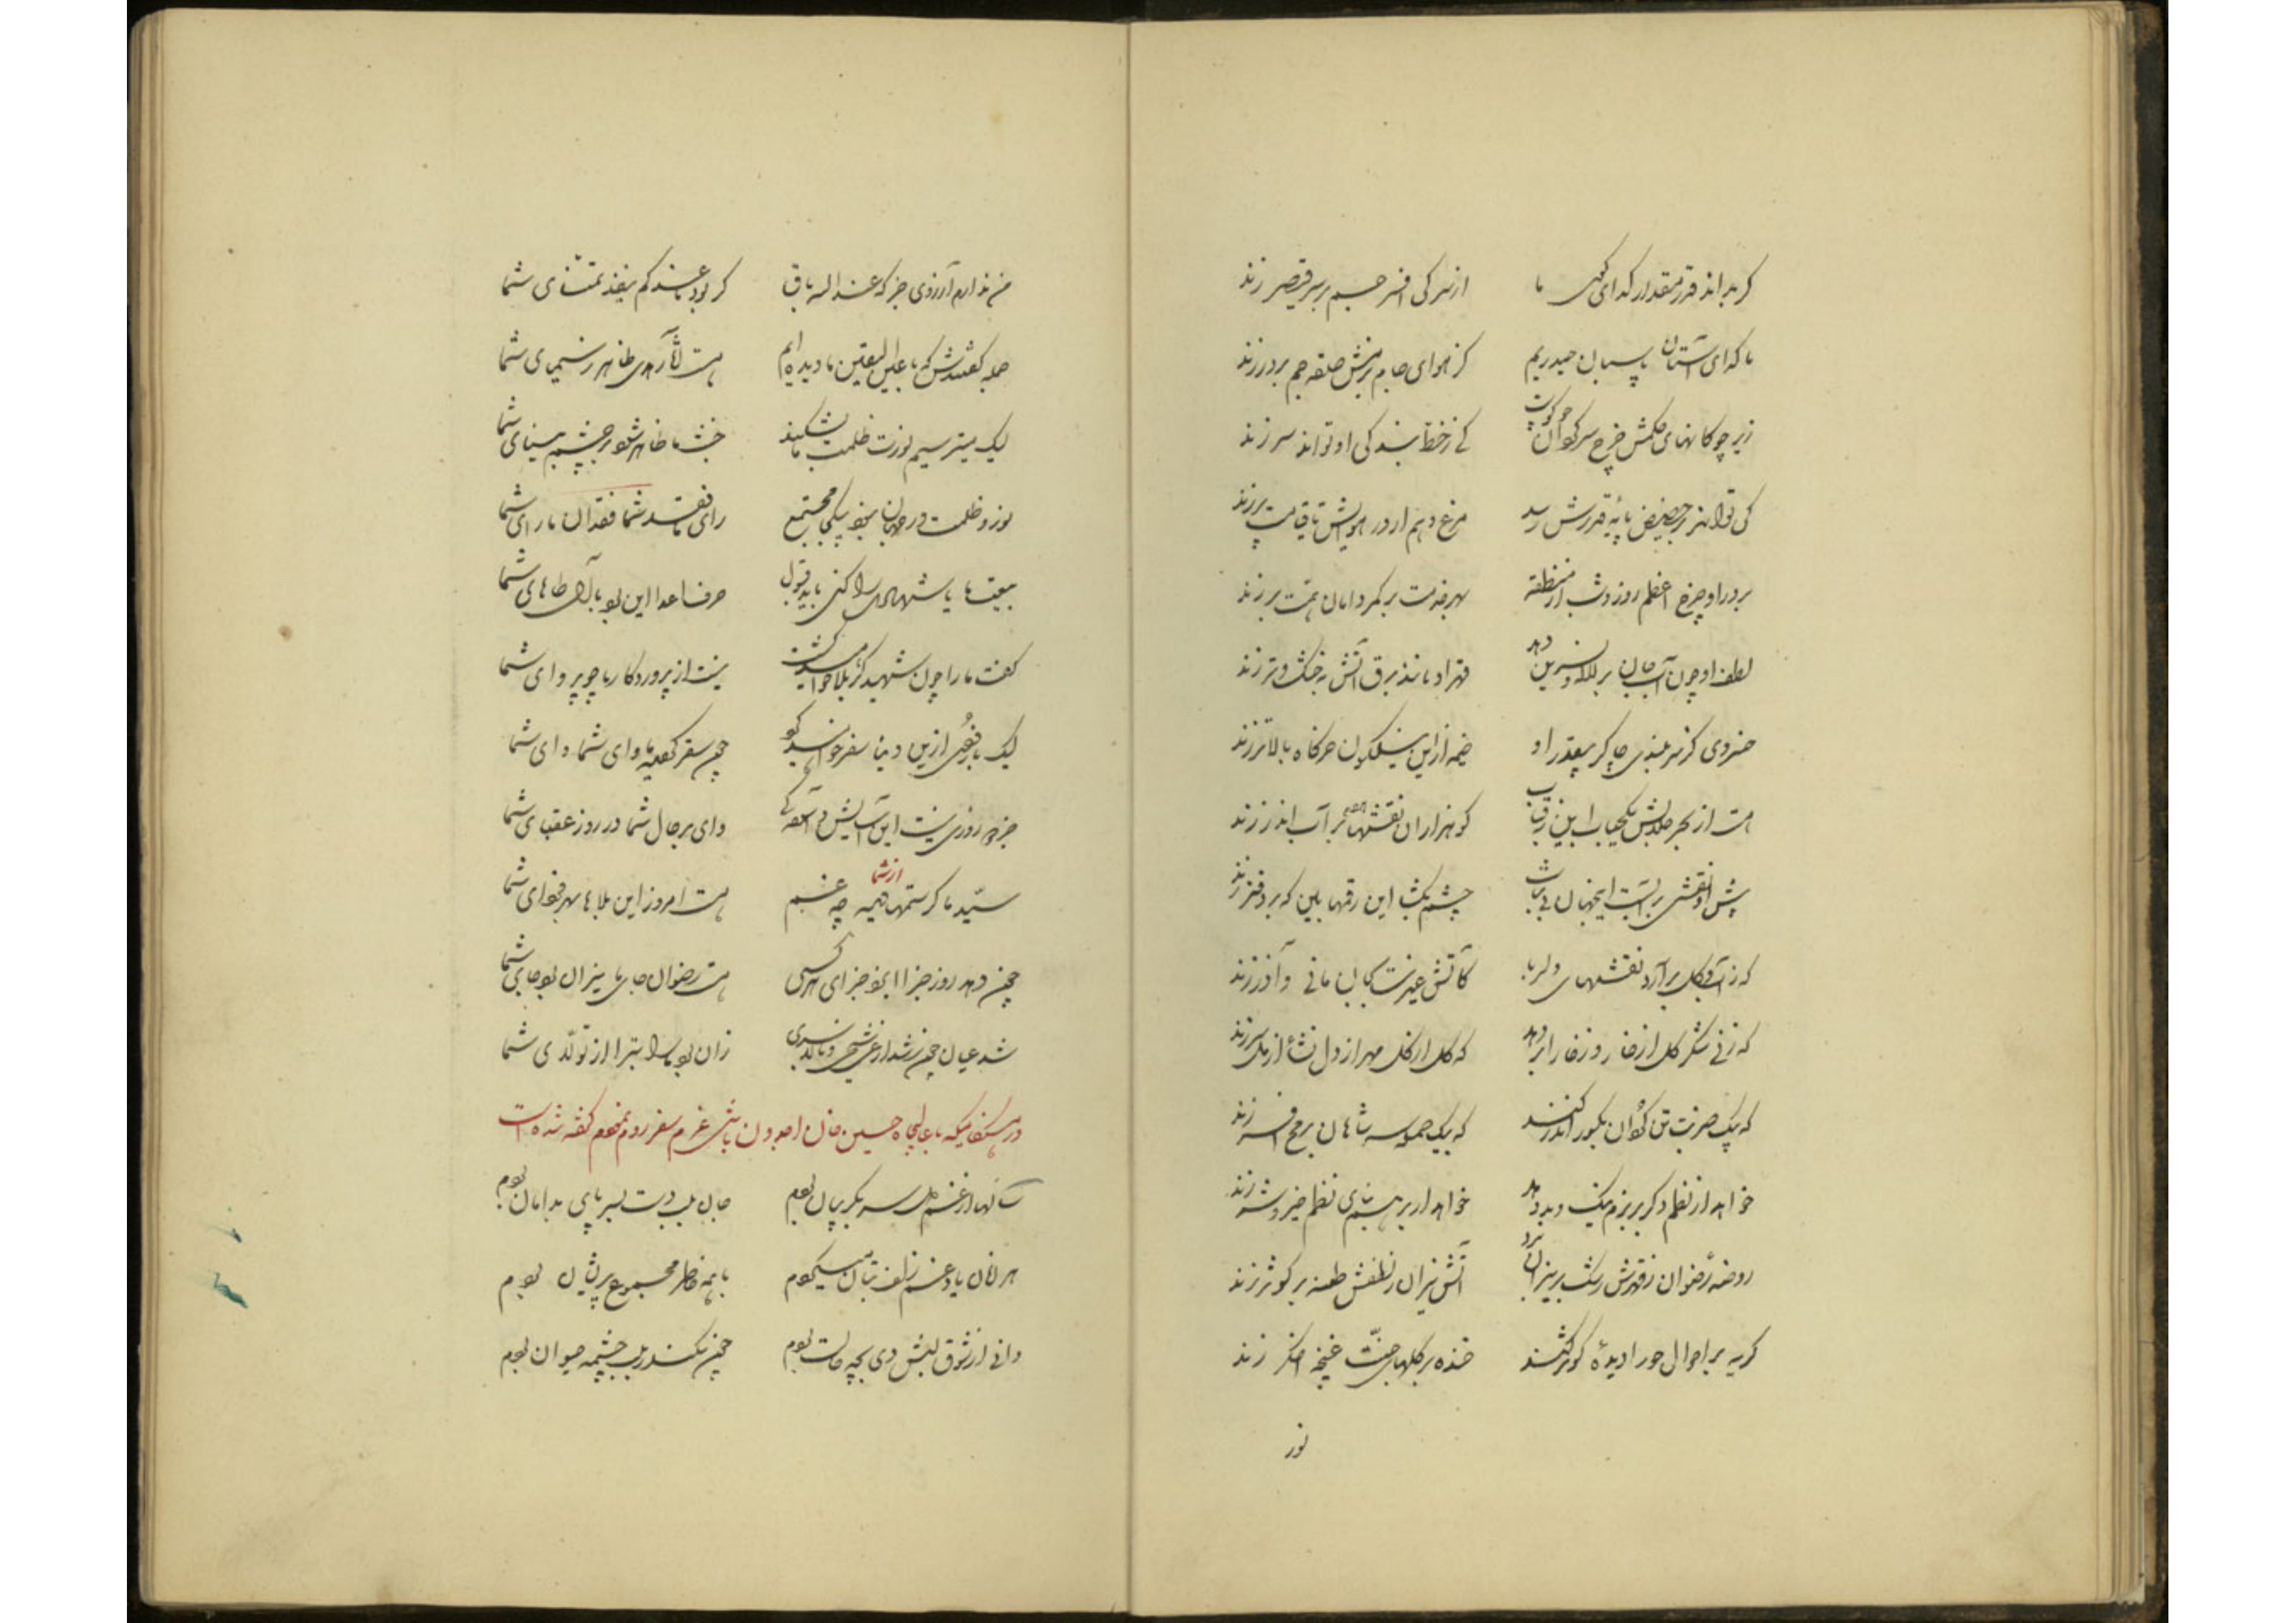 گر بداند قدر و مقدار گدای کوی ما از سر کی افسر جم بر سر قیصر زند
ما گدای آستان پاسبان حیدریم کز هوای جام بزمش حلقه جم بر در زند
زیر چوکانهای حکمش چرخ سرکردان چو کوست کی ز خط بندکی او تواند سر زند
کی تواند بر حضیض پایه قدرش رسد مرغ وهم ار در هوایش تا قیامت پر زند
بر در او چرخ اعظم روز و شب از منطقه بهر خدمت بر کمر دامان همت بر زند
لطف او چون آب جان بر لاله و نسرین دهد قهر او مانند برق آتش به خشک و تر زند
خسروی کز سربلندی چاکر بیقدر او خیمه زاین نیلگون خرگاه بالاتر زند
هست از بحر جلالش یک حباب این قباب کو هزاران نقشها بر آب اندر زند
پیش او نقشی بر آبست اینجهان بی ثبات چشم بگشا این رقمها بین که بر دفتر زند
که ز آب و گل بر آرد نقشهای دلربا کآتش غیرت بجان مانی و آذر زند
که ز نی شکر گل از خار و ز خارا بر دهد که گل از گل مهر از دل نشأ از مل سر زند
که بیک ضربت تن گوان بگور اندر کند که بیک حمله سر شاهان برمح افسر زند
خواهد ار نظم دگر بر بزم نیک و بد دهد خواهد ار بر هم بنای نظم خیر و شر زند
روضه رضوان ز قهرش رشک بر نیران برد آتش نیران ز لطفش طعنه بر کوثر زند
گریه بر احوال حورا دیده کوثر کند خنده بر گلهای جنت غنچه اخگر زند
نور
من ندارم آرزوی جز که عند الله باق گر بود ما عندکم ینفد تمنای شما
جمله گفتندش که ما عین الیقین ما دیده‌ایم هست آثار هدی ظاهر ز سیمای شما
لیک میترسیم نورت ظلمت ما بشکند خبث ما ظاهر شود بر چشم بینای شما
نور و ظلمت در جهان نبود بیکجا مجتمع رای ما فقد شما فقدان ما رای شما
بیعت ما یا شه هدی را کنی باید قبول حرف اعدا این بود با آل طاهای شما
گفت ما را چون شهید کربلا خواهید گشت نیست از پروردگار ما چو پروای شما
لیک باقی ازین دنیا سفر خواهید کرد چون سقر گردید ماوای شما وای شما
جز دو روزی نیست این آسایش و آشفتگی وای بر حال شما در روز عقبای شما
سید ما گر ستمها دیده از شما چه غم هست امروز این بلاها بهر فردای شما
چون دهد روز جزا ایزد جزای هر کسی هست رضوان جای ما نیران بود جای شما
شد عیان چون شد از عرش بری زان بود ما را تبرا از تولای شما
در هنگامیکه با عالیجاه حسین خان اجودان باشی عزم سفر روم نمودم گفته شده است
سالها از غم دل سر بگریبان بودم جان بلب دست بسر پای بدامان بودم
هر زمان یاد غم زلف بتان میکردم با همه خاطر مجموع پریشان بودم
دانی از شوق لبش دی بچه حالت بودم چون سکندر بلب چشمه حیوان بودم